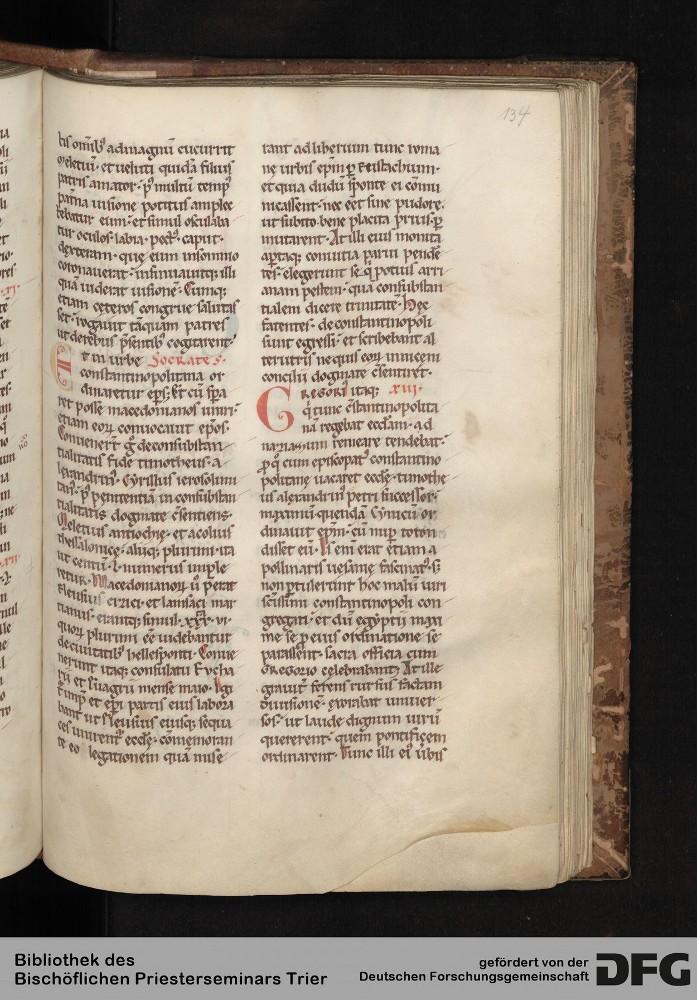 134
bis omib⁹ admagnū cucurrit
meletiū· et veluti quidā filius
patris amator· p⁹ multū temp⁹
pat̄na visione potitus amplec
tebatur eum· et simul oscĺaba
tur oculos· labia· pect⁹· caput·
dexteram· que eum insomnio
coronauerat· insinuauitq; illi
quā viderat visionē· Cumq;
etiam ceteros congrue salutas
set· rogauit tāquam patres
ut de rebus p̄sentib⁹ cogitarent·
Et in urbe Socrates·
constantinopolitana or
dinaretur ep̄s· Et cū spa
ret posse macedonianos uniri
etiam eorꝝ conuocauit ep̄os·
Conuenerт̄ g̊ deconsubstan
tialitatis fide timotheus· a
lexandrin⁹· Cyrillus ierosolimi
tan⁹· p⁹ penitentiā in consubstan
tialitatis dogmate c̄sentiens·
Meletius antiochie· et acolius
thessalonice· aliiq; plurimi· ita
ut centū ·l· numerus imple
retur· Macedonianorꝝ u̓ perat
eleusius cizici· et lamsaci mar
tianus· erantq; simul ·xxx· vi·
quorꝝ plurimi eē uidebantur
deciuitatib⁹ hellesponti· Conue
nerunt itaq; consulatu Eucha
rii et Euagrii mense maio· Igi
t̃ imp̄r et ep̄i partis eius labora
bant ut eleusius eiusq; sequa
ces unirent̃ ecclē· com̄emoran
te eo legationem quā mise
rant ad liberium tunc roma
ne urbis ep̄m ꝑ Eustachium·
et quia dudū sponte ei com̄u
nicassent· nec eet sine pudore·
ut subito bene placita prius· ꝑ
mutarent· At illi eius monita
apertaq; conuitia parui penden
tes· elegerunt se q̄ potius arri
anam pestem· qua consubstan
tialem dicere trinitatē· Hec
fatentes· de constantinopoli
sunt egressi· et scribebant al
terutris ne quis eorꝝ inniceni
concilii dogmate c̄sentiret·
Gregori⁹ itaq; xiii·
q̇ tunc c̄stantinopolita
nā regebat eccĺam· ad
nazianzum remeare tendebat·
ꝑ q̇q cum episcopat⁹ constantino
politane uacaret ecclē· timothe
us alexandrin⁹ petri successor·
maximū quendā cynicū or
dinauit ep̄m· cū nup̄ toton
disset eū· Hi eni erat etiam a
pollinaris uesanie fascinat⁹· S;
non ꝑtulerunt hoc malū uiri
sc̄issimi constantinopoli con
gregati· et dū egyptii maxi
me se ꝑ eius ordinatione se
parassent· sacra officia cum
Gregorio celebrabant· At ille
grauit̃ ferens rursus factam
diuisionē· exorabat uniuer
sos· ut laude dignum uirū
quererent· quem pontificem
ordinarent· Tunc illi ei⁹ u̓bis
Bibliothek des
Bischöflichen Priesterseminars Trier
gefördert von der
Deutschen Forschungsgemeinschaft
DFG